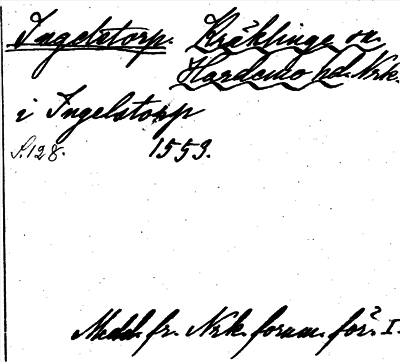 Ingelstorp. Kräklinge sn.
Hardemo hd. Nrk.
i Ingelstorp
S. 128. 1559.
Medd. fr. Nrk. fornm. för. I.